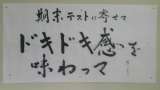 期末テストに寄せて
ドキドキ感っを
味わって